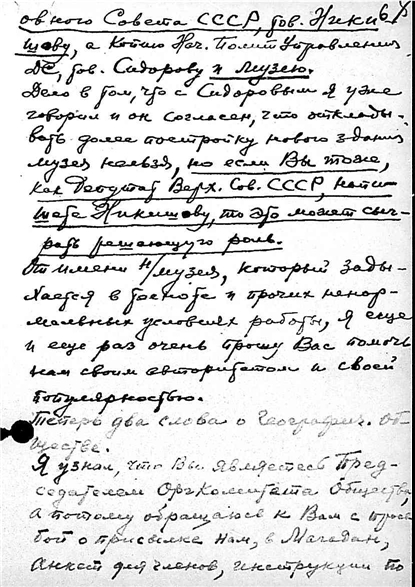 овного Совета СССР, тов. Ники
шову, а копию Нач. Полит Управления
ДС, тов. Сидорову и музею.
Дело в том, что с Сидоровым я уже
говорил и он согласен, что отклады-
вать далее постройку нового здания
музея нельзя, но если Вы тоже,
как Депутат Верх. Сов. СССР, напи
шете Никишову, то это может сыг-
рать решающую роль.
От имени н/музея, который зады-
хается в тесноте и прочих ненор-
мальных условиях работы, я еще
и еще раз очень прошу Вас помочь
нам своим авторитетом и своей
популярностью.
Теперь два слова о Географич. об-
ществе.
Я узнал, что Вы являетесь Пред-
седателем Оргкомитета Общества,
а потому обращаюсь к Вам с прось
бой о присылке нам, в Магадан,
анкет для членов, инструкции по